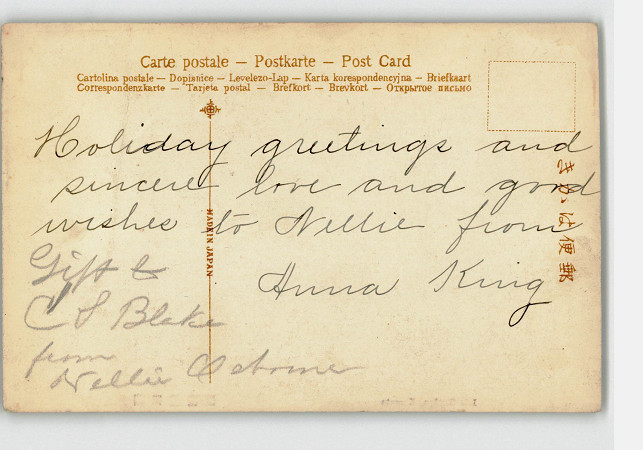 Carte postale — Postkarte — Post Card
Cartolina postale — Dopisnice — Levelezo-Lap — Karta korespondencyjna — Briefkaart
Correspondenzkarte — Tarjeta postal — Brefkort — Brevkort — Открытое письмо
Holiday greetings and
sincere love and good
wishes to Nellie from
Anna King
Gift to
C S Blake
from
Nellie Osborne
MADE IN JAPAN
きかは便郵